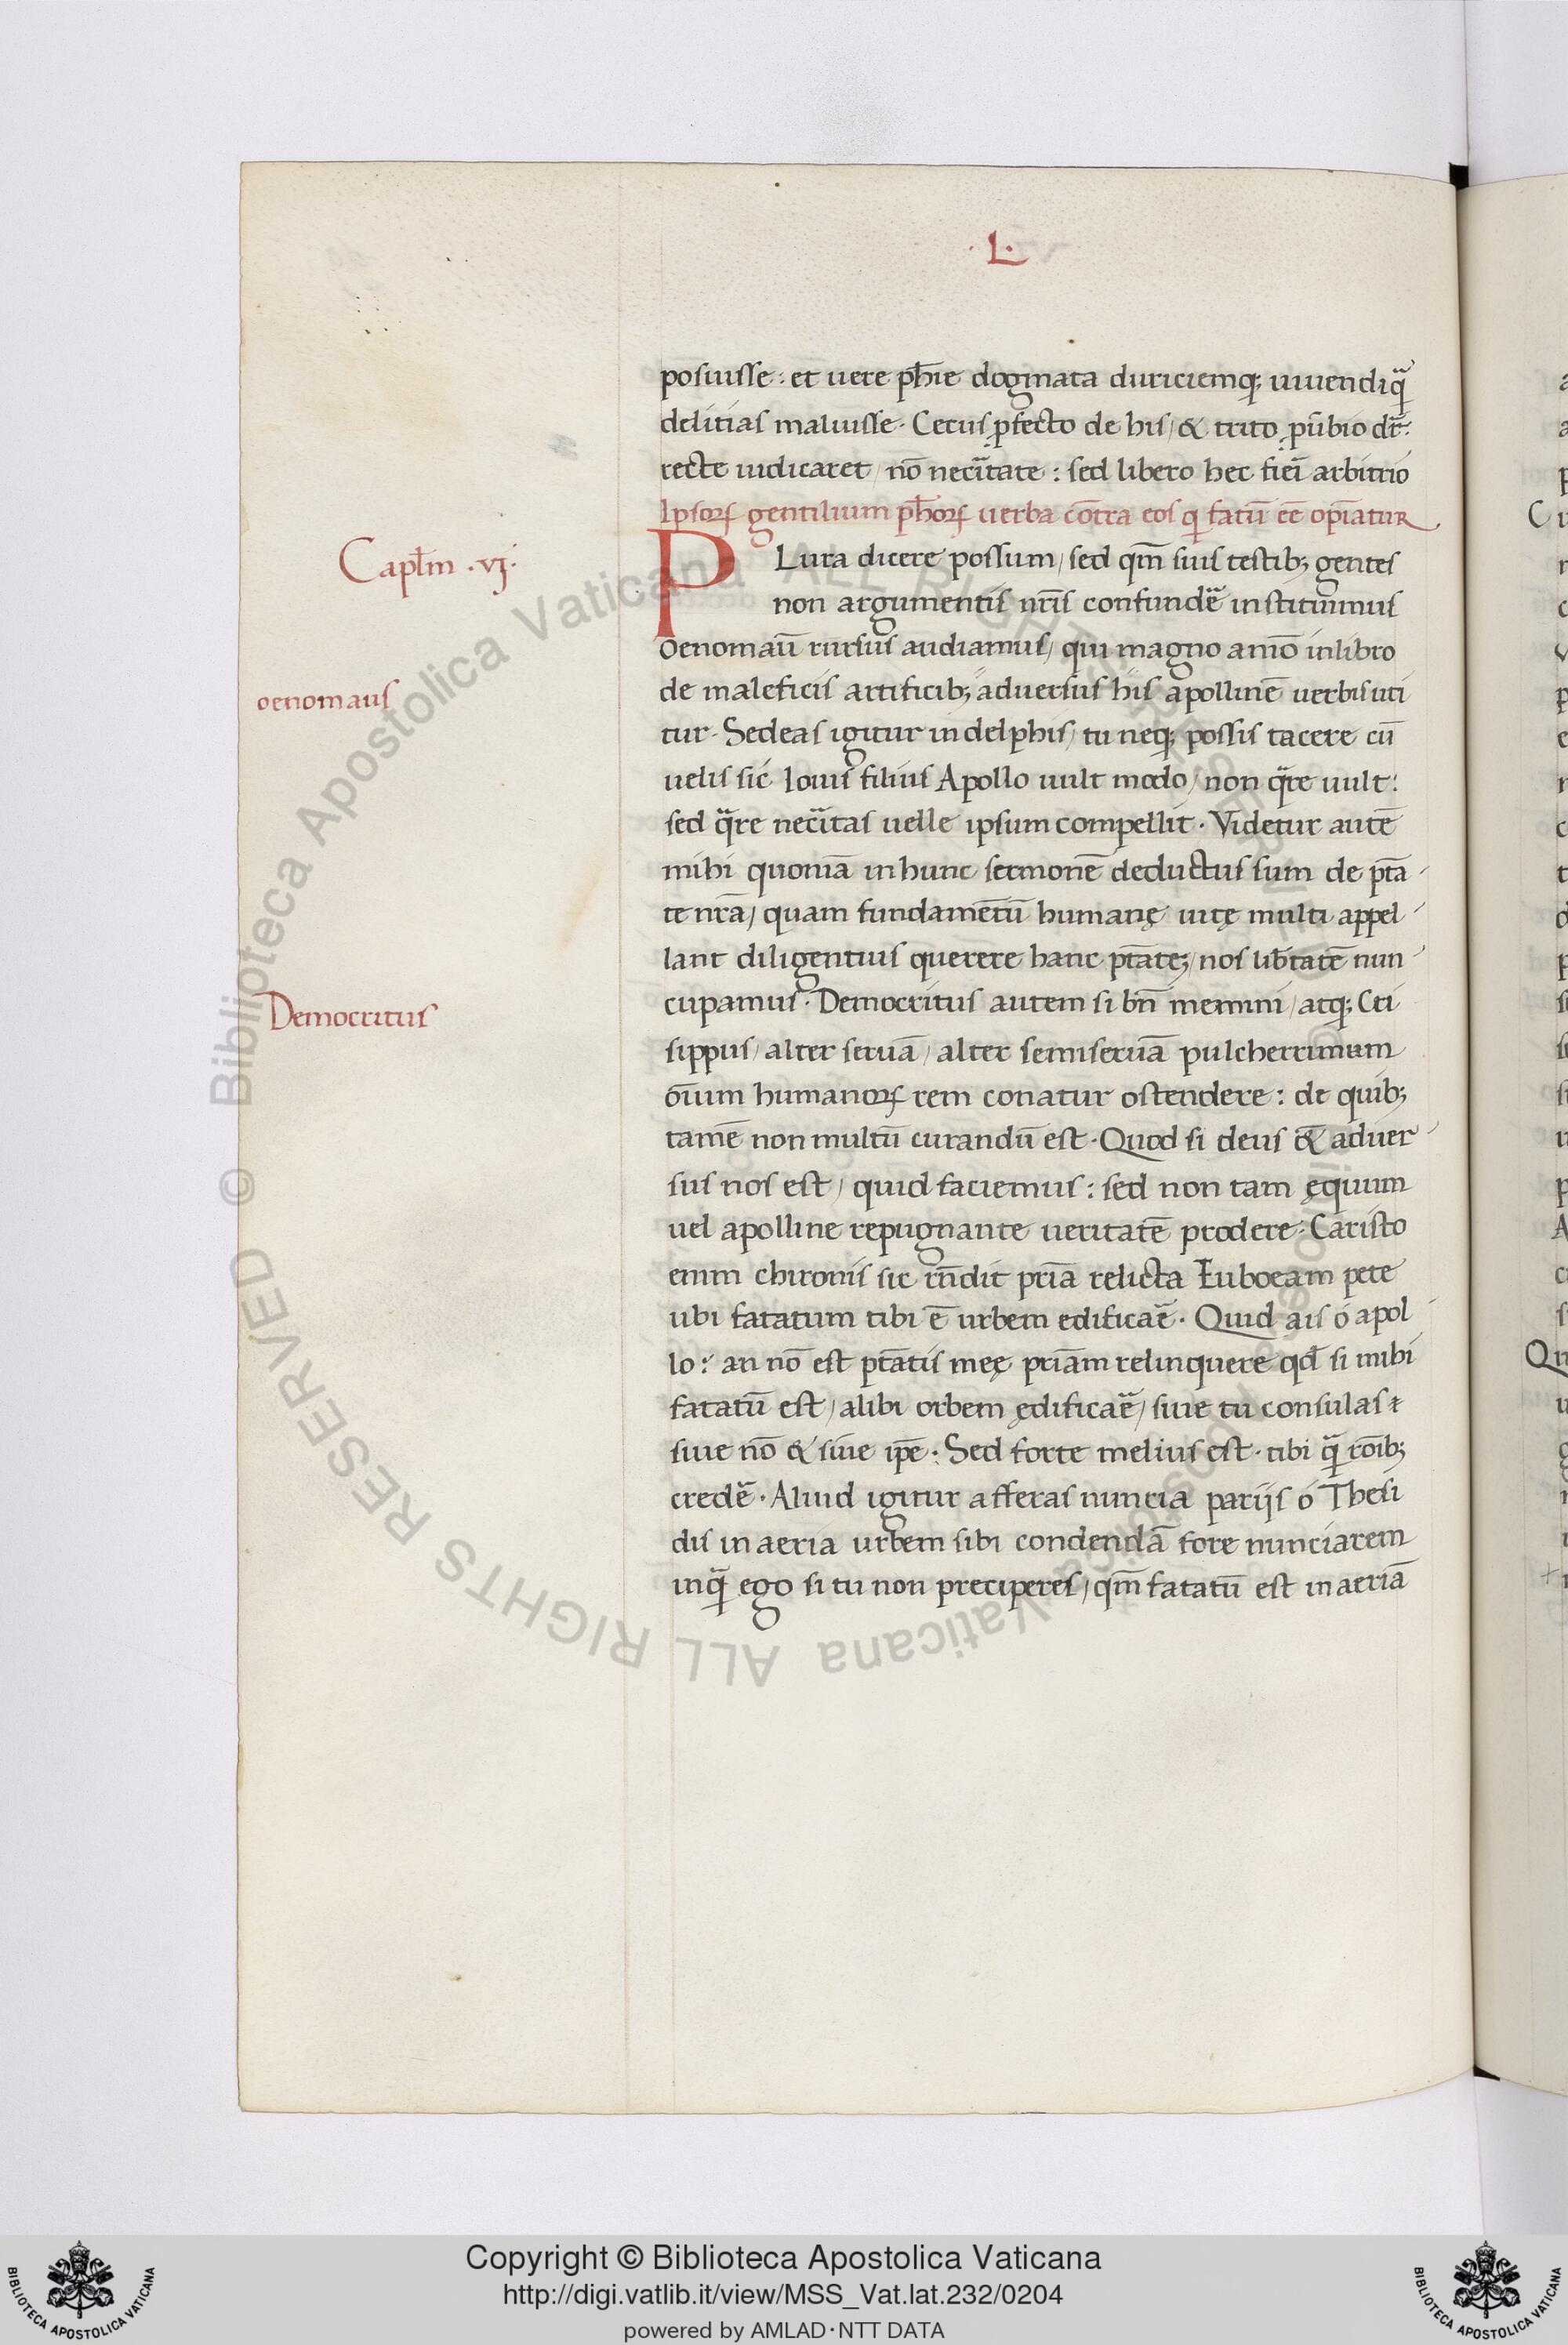 · L ·
posuisse : et uere ph̄ie dogmata duriciemq; uiuendi q̃
delitias maluisse · Cecus ꝓfecto de his / & trito ꝓu̇bio dr̄ :
recte iudicaret / nō neci̅tate : sed libero hec fieĩ arbitrio
Ipsoꝝ gentilium ph̄oꝝ uerba cōtra eos q̣ fatū eē opīatur
Capłm · vj ·
PLura dicere possum / sed qm̄ suis testib; gentes
non argumentis nr̄is confundẽ instituimus
oenomaū rursus audiamus / qui magno aı̅o in libro
oenomaus
de maleficis artificib; aduersus his apollinē uerbis uti
tur · Sedeas igitur in delphis / tu neq; possis tacere cū
uelis sic Iouis filius Apollo uult modo / non q̃re uult :
sed q̃re neci̅tas uelle ipsum compellit · Videtur autē
mihi quoniā in hunc sermonē deductus sum de ptā
te nrā / quam fundamētū humanę uitę multi appel
lant diligentius querere hanc ptātē; / nos lib̄tatē nun
cupamus · Democritus autem si bn̄ memini / atq; Cri
Democritus
sippus / alter seruā / alter semiseruā pulcherrimam
oīum humanoꝝ rem conatur ostendere : de quib;
tamē non multū curandū est · Quod si deus & aduer
sus nos est / quid faciemus : sed non tam ęquum
uel apolline repugnante ueritatē prodere · Caristo
enim chironis sic rn̄dit pr̄ia relicta Euboeam pete
ubi fatatum tibi ē urbem edificaẽ · Quid ais ó apol
lo : an nō est ptātis meę pr̄iam relinquere qd̄ si mihi
fatatū est / alibi orbem ędificaẽ / siue tu consulas
siue nō & siue ip̄e : Sed forte melius est · tibi q̃ rōib;
credẽ · Aliud igitur afferas nuncia parijs ó Thesi
dis in aeria urbem sibi condendā fore nunciarem
inq̃ ego si tu non preciperes / qm̄ fatatū est in aeriā
Copyright © Biblioteca Apostolica Vaticana
http://digi.vatlib.it/view/MSS_Vat.lat.232/0204
powered by AMLAD·NTT DATA